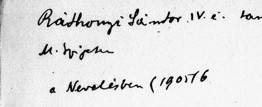 Ráthonyi Sándor IV. é. tan
M. Szigeten
a Nevelésben (1905/6